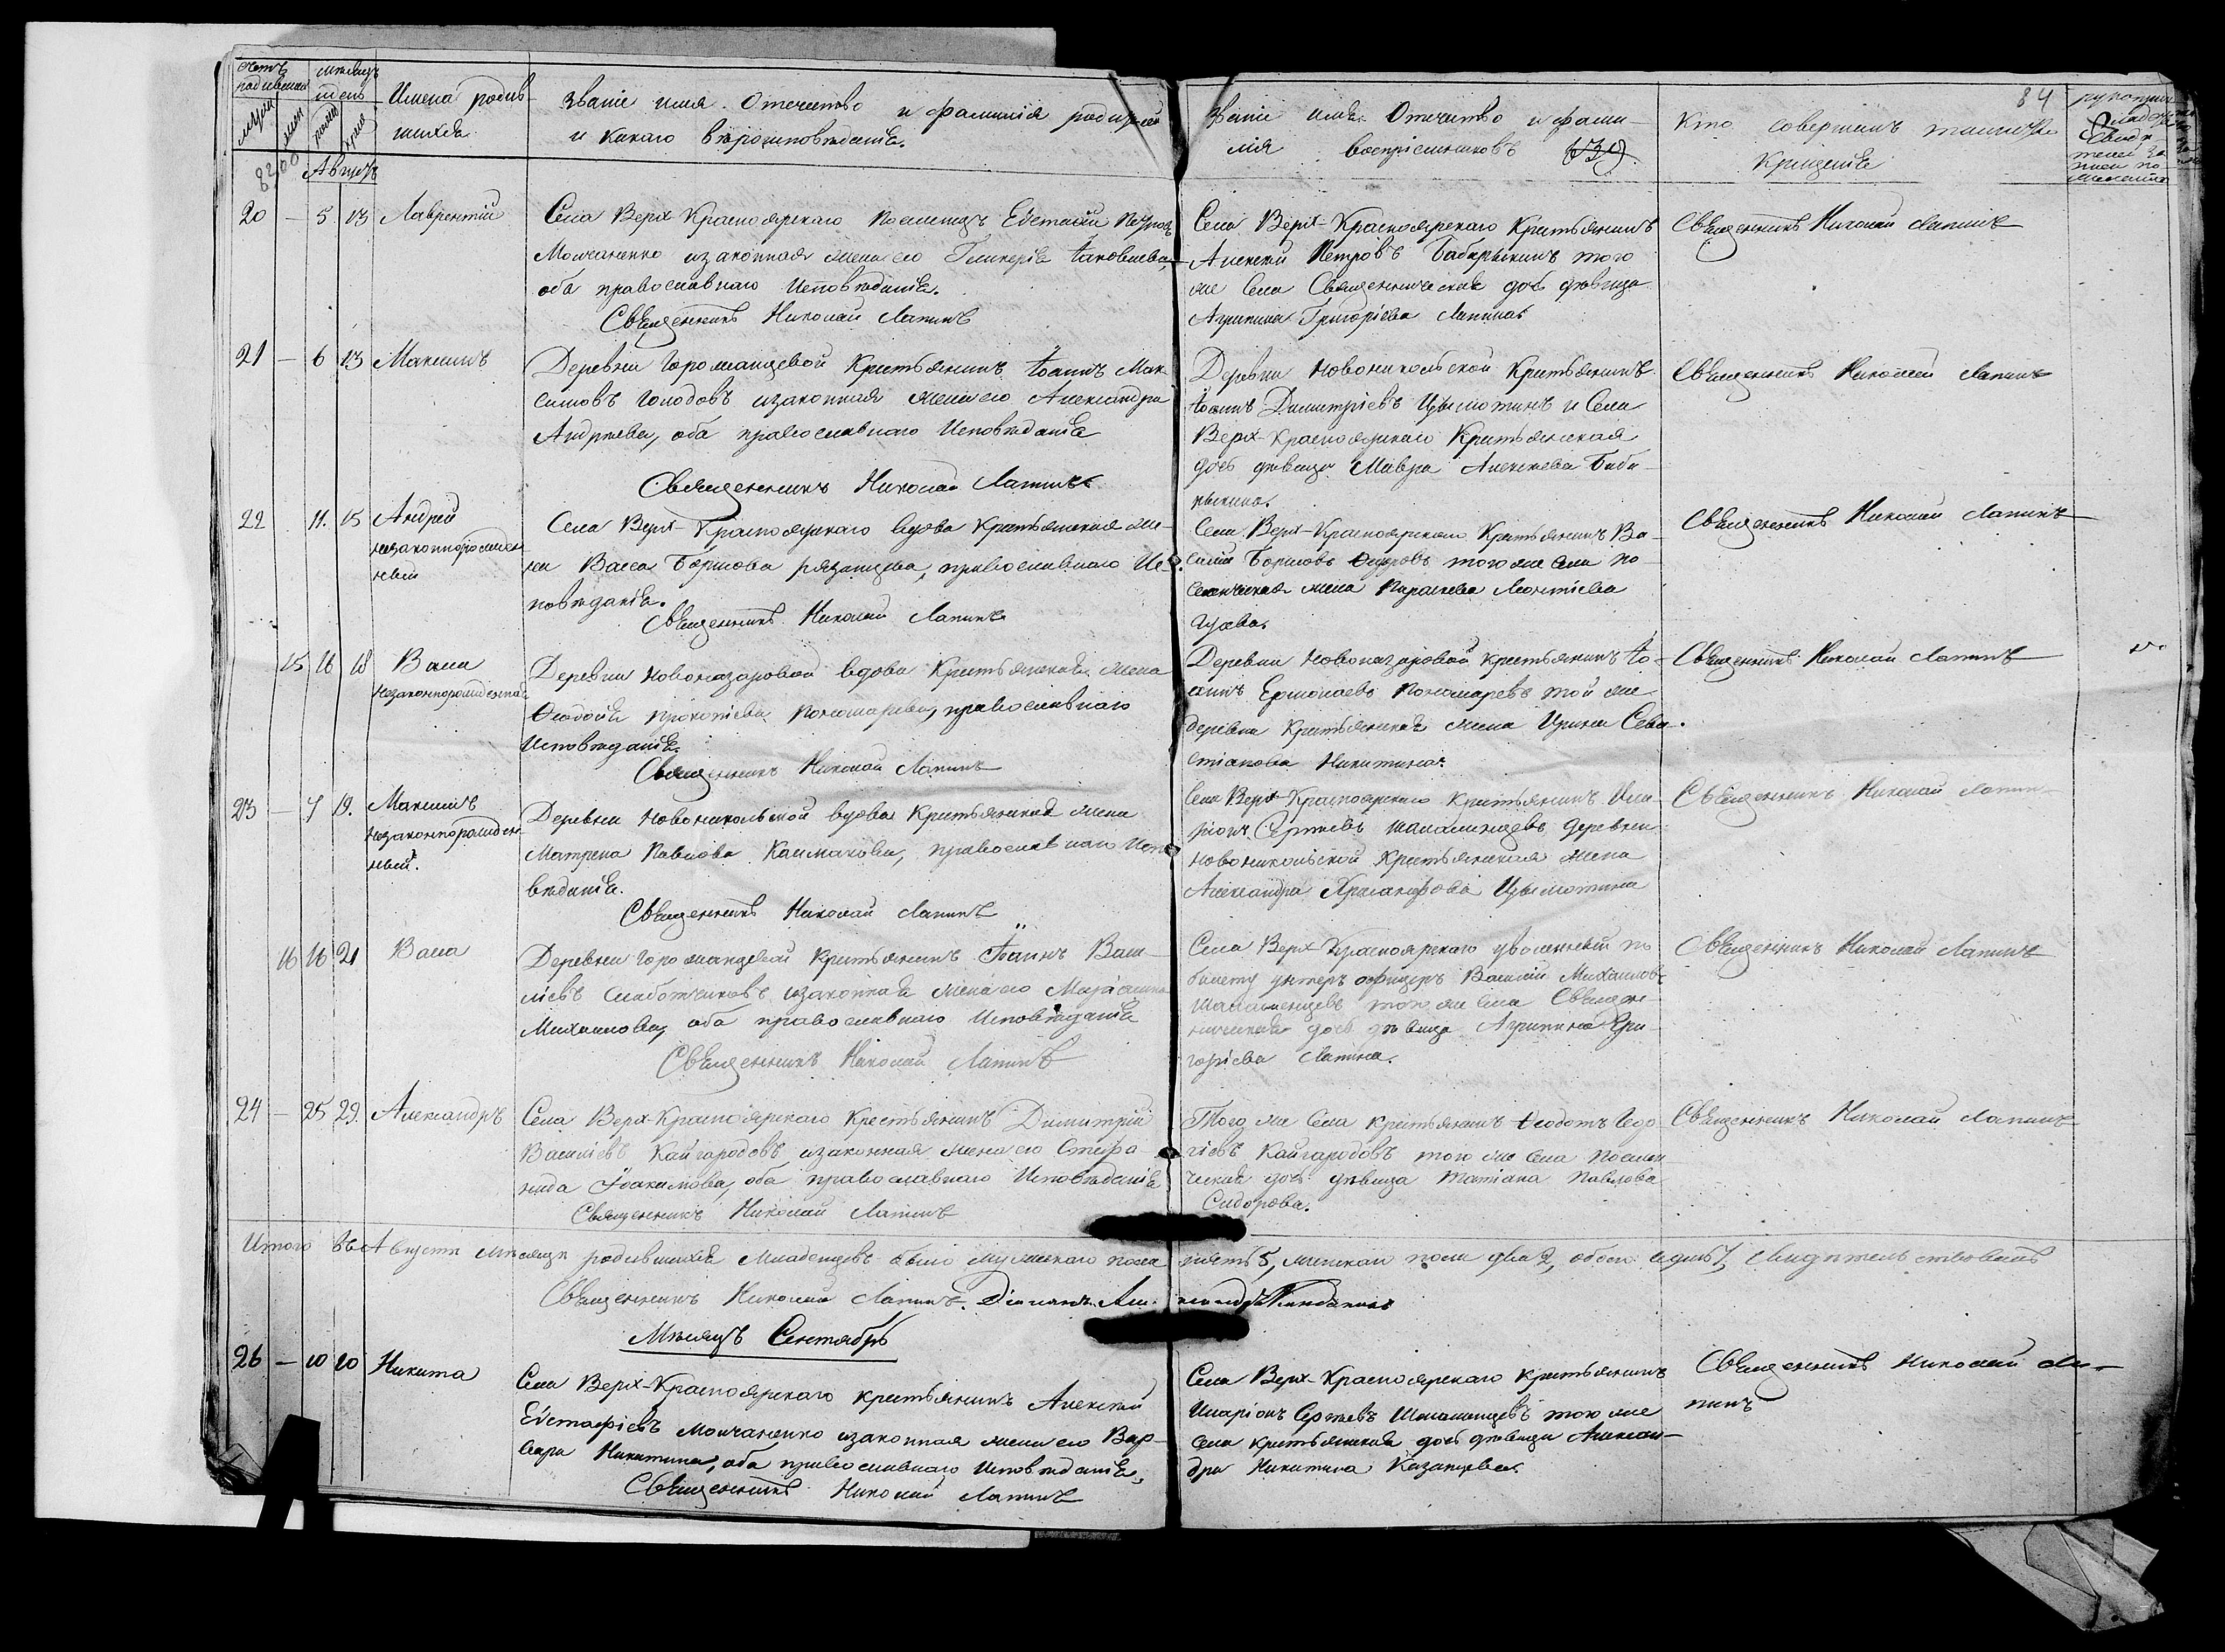 Счетъ родившихся
мѣсяцъ и день
Имена родив-
шихся
Званіе имя Отечество и фамилія родителей
и какого вѣроисповѣданія.
Званіе имя Отчество и фами-
лія воспріемниковъ
Кто совершалъ таинство
Крещенія
84
Августъ
20 — 5 13 Лаврентій
Села Верх-Красноярскаго поселенецъ Евстафій Петровъ
Молчаненко и законная жена его Гликерія Іаковлева,
оба православнаго Исповѣданія.
Священникъ Николай Лапинъ
Села Верх-Красноярскаго Крестьянинъ
Алексѣй Петровъ Бабкрыкинъ того
же Села Священническая дочь дѣвица
Агрипина Григоріева Лапина
Священникъ Николай Лапинъ
21 — 6 13 Максимъ
Деревни Горожанцевой Крестьянинъ Іоаннъ Мак-
симовъ Голодовъ и законная жена его Александра
Андреева, оба православнаго Исповѣданія
Священникъ Николай Лапинъ
Деревни Новоникольской Крестьянинъ
Іоаннъ Димитріевъ Изымотинъ и Села
Верх-Красноярскаго Крестьянская
дочь дѣвица Мавра Алексѣева Баба-
рыкина.
Священникъ Николай Лапинъ
22 11. 15 Андрей
незаконнорожден-
ный
Села Верх-Красноярскаго вдова Крестьянская же-
на Васса Борисова Рязанцева, православнаго Ис-
повѣданія.
Священникъ Николай Лапинъ
Села Верх-Красноярскаго Крестьянинъ Ва-
силій Борисовъ того же села по-
селенческая жена Параскева Леонтіева
Гусева.
Священникъ Николай Лапинъ
15 16 18 Васса
незаконнорожденная
Деревни Новоназаровой вдова Крестьянская жена
Ѳеодосія Прокопіева Пономарева, православнаго
Исповѣданія.
Священникъ Николай Лапинъ
Деревни Новоназаровой крестьянинъ Іо-
аннъ Ермолаевъ Пономаревъ той же
деревни Крестьянская жена Ирина Сева-
стіанова Никитина.
Священникъ Николай Лапинъ
23 — 7 19. Максимъ
незаконнорожден-
ный.
Деревни Новоникольской вдова Крестьянская жена
Матрена Павлова Калмакова, православнаго Испо-
вѣданія.
Священникъ Николай Лапинъ
Села Верх-Красноярскаго Крестьянинъ Ила-
ріонъ Сергѣевъ Шаламенцевъ деревни
Новоникольской Крестьянская жена
Александра Хрисанфова Изымотина
Священникъ Николай Лапинъ
16 16 21 Васса
Деревни Горожанцевой Крестьянинъ Іоаннъ Васи-
ліевъ Слаботчиковъ и законная жена его Маріамна
Михаилова, оба православнаго Исповѣданія
Священникъ Николай Лапинъ
Села Верх-Красноярскаго уволенный по
билету унтеръ офицеръ Василій Михаиловъ
Шаламенцевъ того же села Священ-
ническая дочь дѣвица Агрипина Гри-
горіева Лапина.
Священникъ Николай Лапинъ
24 — 25 29. Александръ
Села Верх-Красноярскаго Крестьянинъ Димитрій
Василіевъ Кайгародовъ и законная жена его Стефа-
нида Іоакимова, оба православнаго Исповѣданія
Священникъ Николай Лапинъ
Того же Села крестьянинъ Ѳеодотъ Геор-
гіевъ Кайгародовъ того же села поселен-
ческая дочь дѣвица Татіана Павлова
Сидорова.
Священникъ Николай Лапинъ
Итого въ Августѣ мѣсяцѣ родившихся младенцевъ было мужескаго пола пять 5, женскаго пола два 2, обоего седмь 7, Свидѣтельствовалъ
Священникъ Николай Лапинъ. Діаконъ
Мѣсяцъ Сентябрь
26 — 10 20 Никита
Села Верх-Красноярскаго крестьянинъ Алексѣй
Евстафіевъ Молчаненко и законная жена его Вар-
вара Никитина, оба православнаго Исповѣданія.
Священникъ Николай Лапинъ
Села Верх-Красноярскаго Крестьянинъ
Иларіонъ Сергѣевъ Шаламенцевъ того же
села крестьянская дочь дѣвица Алексан-
дра Никитина Казанцева.
Священникъ Николай Ла-
пинъ